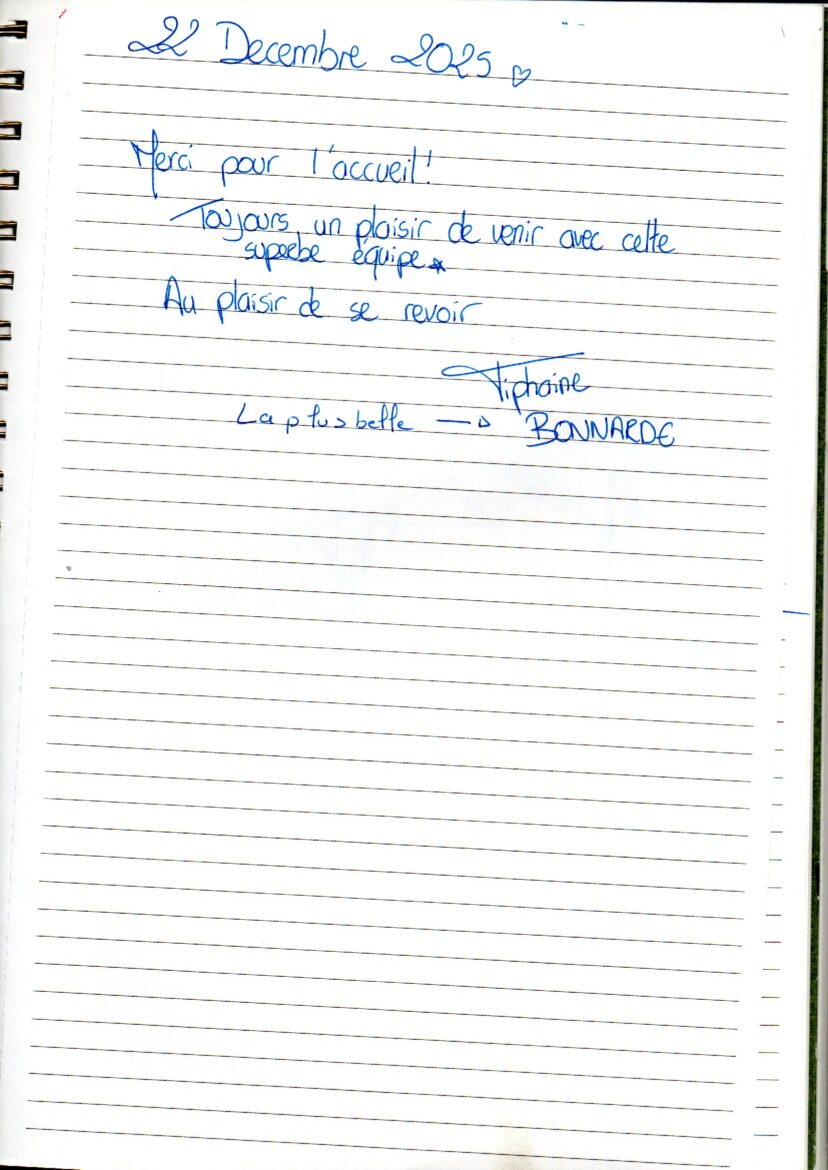 22 Decembre 2025 ♡
Merci pour l'accueil!
Toujours un plaisir de venir avec cette
superbe équipe
Au plaisir de se revoir
Tiphaine
La plus belle → BONNARDE